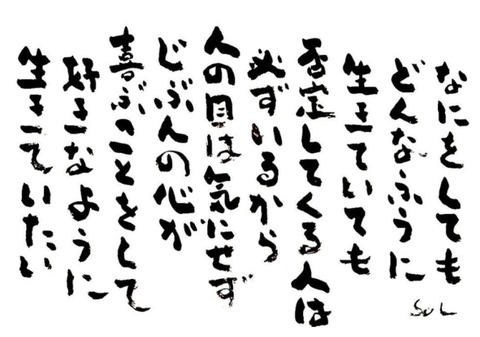 なにをしても
どんなふうに
生きていても
否定してくる人は
必ずいるから
人の目は気にせず
じぶんの心が
喜ぶことをして
好きなように
生きていたい